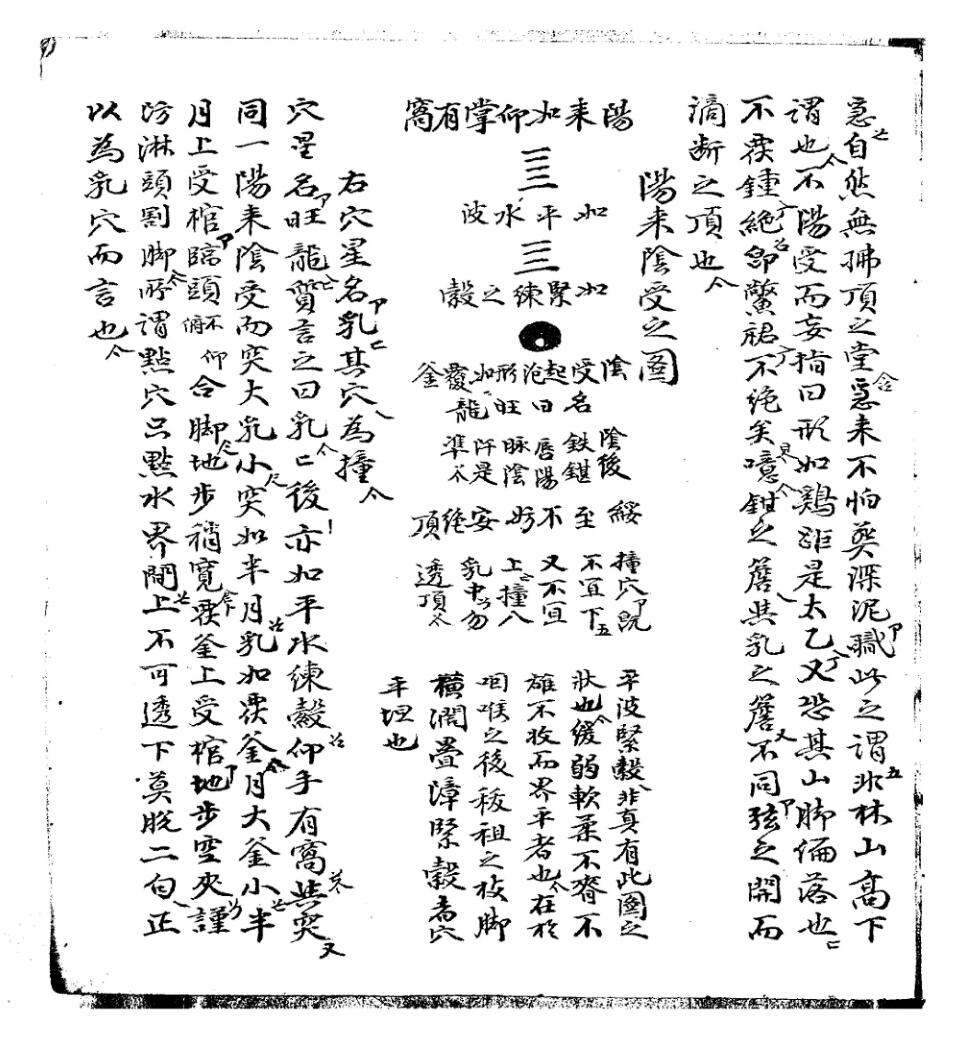 急自然無拂頂之堂急来不怕葬深泥職此之謂非林山高下
謂也不陽受而妄指曰形如鷄距是太乙又恐其山脚偏落也
不覆鍾絶命鱉裙不绝矣噫鉗之簷與乳之簷不同弦之開而
滴断之頂也
陽来陰受之圖
陽来如仰掌有窩
三三
如平水波
三三
如緊練之縠
陰受起泡形如覆釜
名曰旺龍
陰後鉄鍖唇陽脉陰阡是準
緩至不妨安绝頂
撞穴既不宜下
又不宜上撞入
乳中勿透頂
平波緊縠非真有此圖之
狀也缓弱軟柔不脊不
雄不收而界平者也在於
咽喉之後秡祖之枝脚
横濶疊漳緊縠者穴
平坦也
右穴星名乳其穴為撞
穴星名旺龍質言之曰乳後亦如平水練縠仰手有窩與突
同一陽来陰受而突大乳小突如半月乳如覆釜月大釜小半
月上受棺臨頭不俯仰合脚地步稍寛覆釜上受棺地步窄夾謹
防淋頭割脚所謂點穴只點水界間上不可透下莫脱二句正
以為乳穴而言也